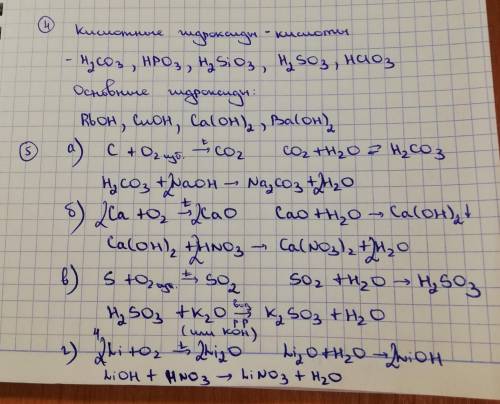 ④ Кислотные гидроксиды - кислоты
- H₂CO₃, HPO₃, H₂SiO₃, H₂SO₃, HClO₃
Основные гидроксиды:
RbOH, CuOH, Ca(OH)₂, Ba(OH)₂
⑤ а) C + O₂ изб. →(t) CO₂ CO₂ + H₂O ⇄ H₂CO₃
H₂CO₃ + 2NaOH → Na₂CO₃ + 2H₂O
б) 2Ca + O₂ →(t) 2CaO CaO + H₂O → Ca(OH)₂↓
Ca(OH)₂ + 2HNO₃ → Ca(NO₃)₂ + 2H₂O
в) S + O₂ изб. →(t) SO₂ SO₂ + H₂O → H₂SO₃
H₂SO₃ + K₂O →(вод р-р) K₂SO₃ + H₂O
(или KOH)
г) 4Li + O₂ →(t) 2Li₂O Li₂O + H₂O → 2LiOH
LiOH + HNO₃ → LiNO₃ + H₂O